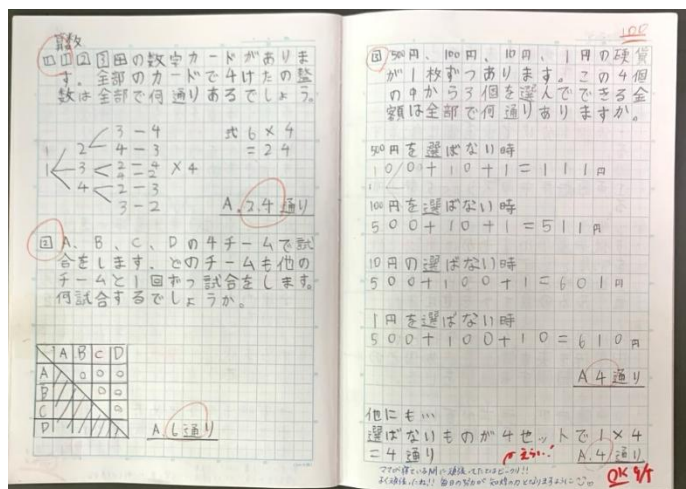 算数
1 1 2 3 4 の数字カードがありま
す。全部のカードで4けたの整
数は全部で何通りあるでしょう。
3-4
2 4-3
1 3 2-4 ×4
4-2
4 2-3
3-2
式 6×4
=24
A.24通り
2 A、B、C、Dの4チームで試
合をします。どのチームも他の
チームと1回ずつ試合をします。
何試合するでしょうか。
A B C D
A ○ ○ ○
B ○ ○
C ○
D
A 6通り
100
3 500円、100円、10円、1円の硬貨
が1枚ずつあります。この4個
の中から3個を選んでできる金
額は全部で何通りありますか。
500円を選ばない時
100+10+1=111円
100円を選ばない時
500+10+1=511円
10円の選ばない時
500+100+1=601円
1円を選ばない時
500+100+10=610円
A 4通り
他にも…
選ばないものが4セットで1×4
=4通り
えらい!
A.4通り
ママが寝ている間に頑張ってたとはビックリ!!
よく頑張ったね!!毎日の努力が
OK